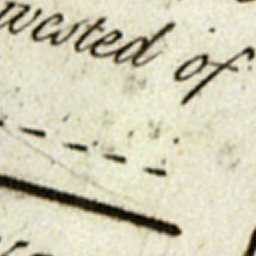 wested of